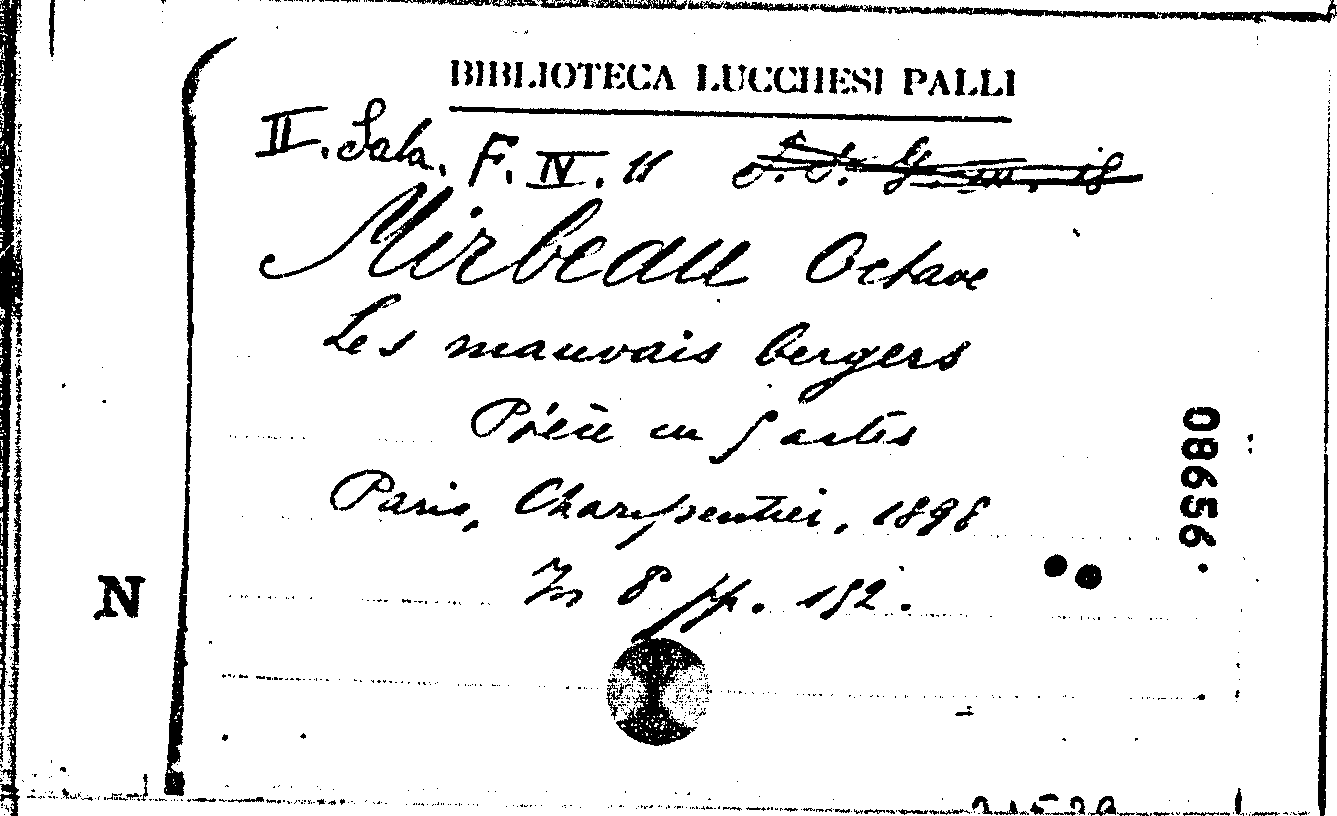 BIBLIOTECA LUCCHESI PALLI
II. Sala. F. IV. 11
Mirbeau Octave
Les mauvais bergers
Pièce en 5 actes
Paris, Charpentier, 1898
In 8° pp. 152.
08656
N